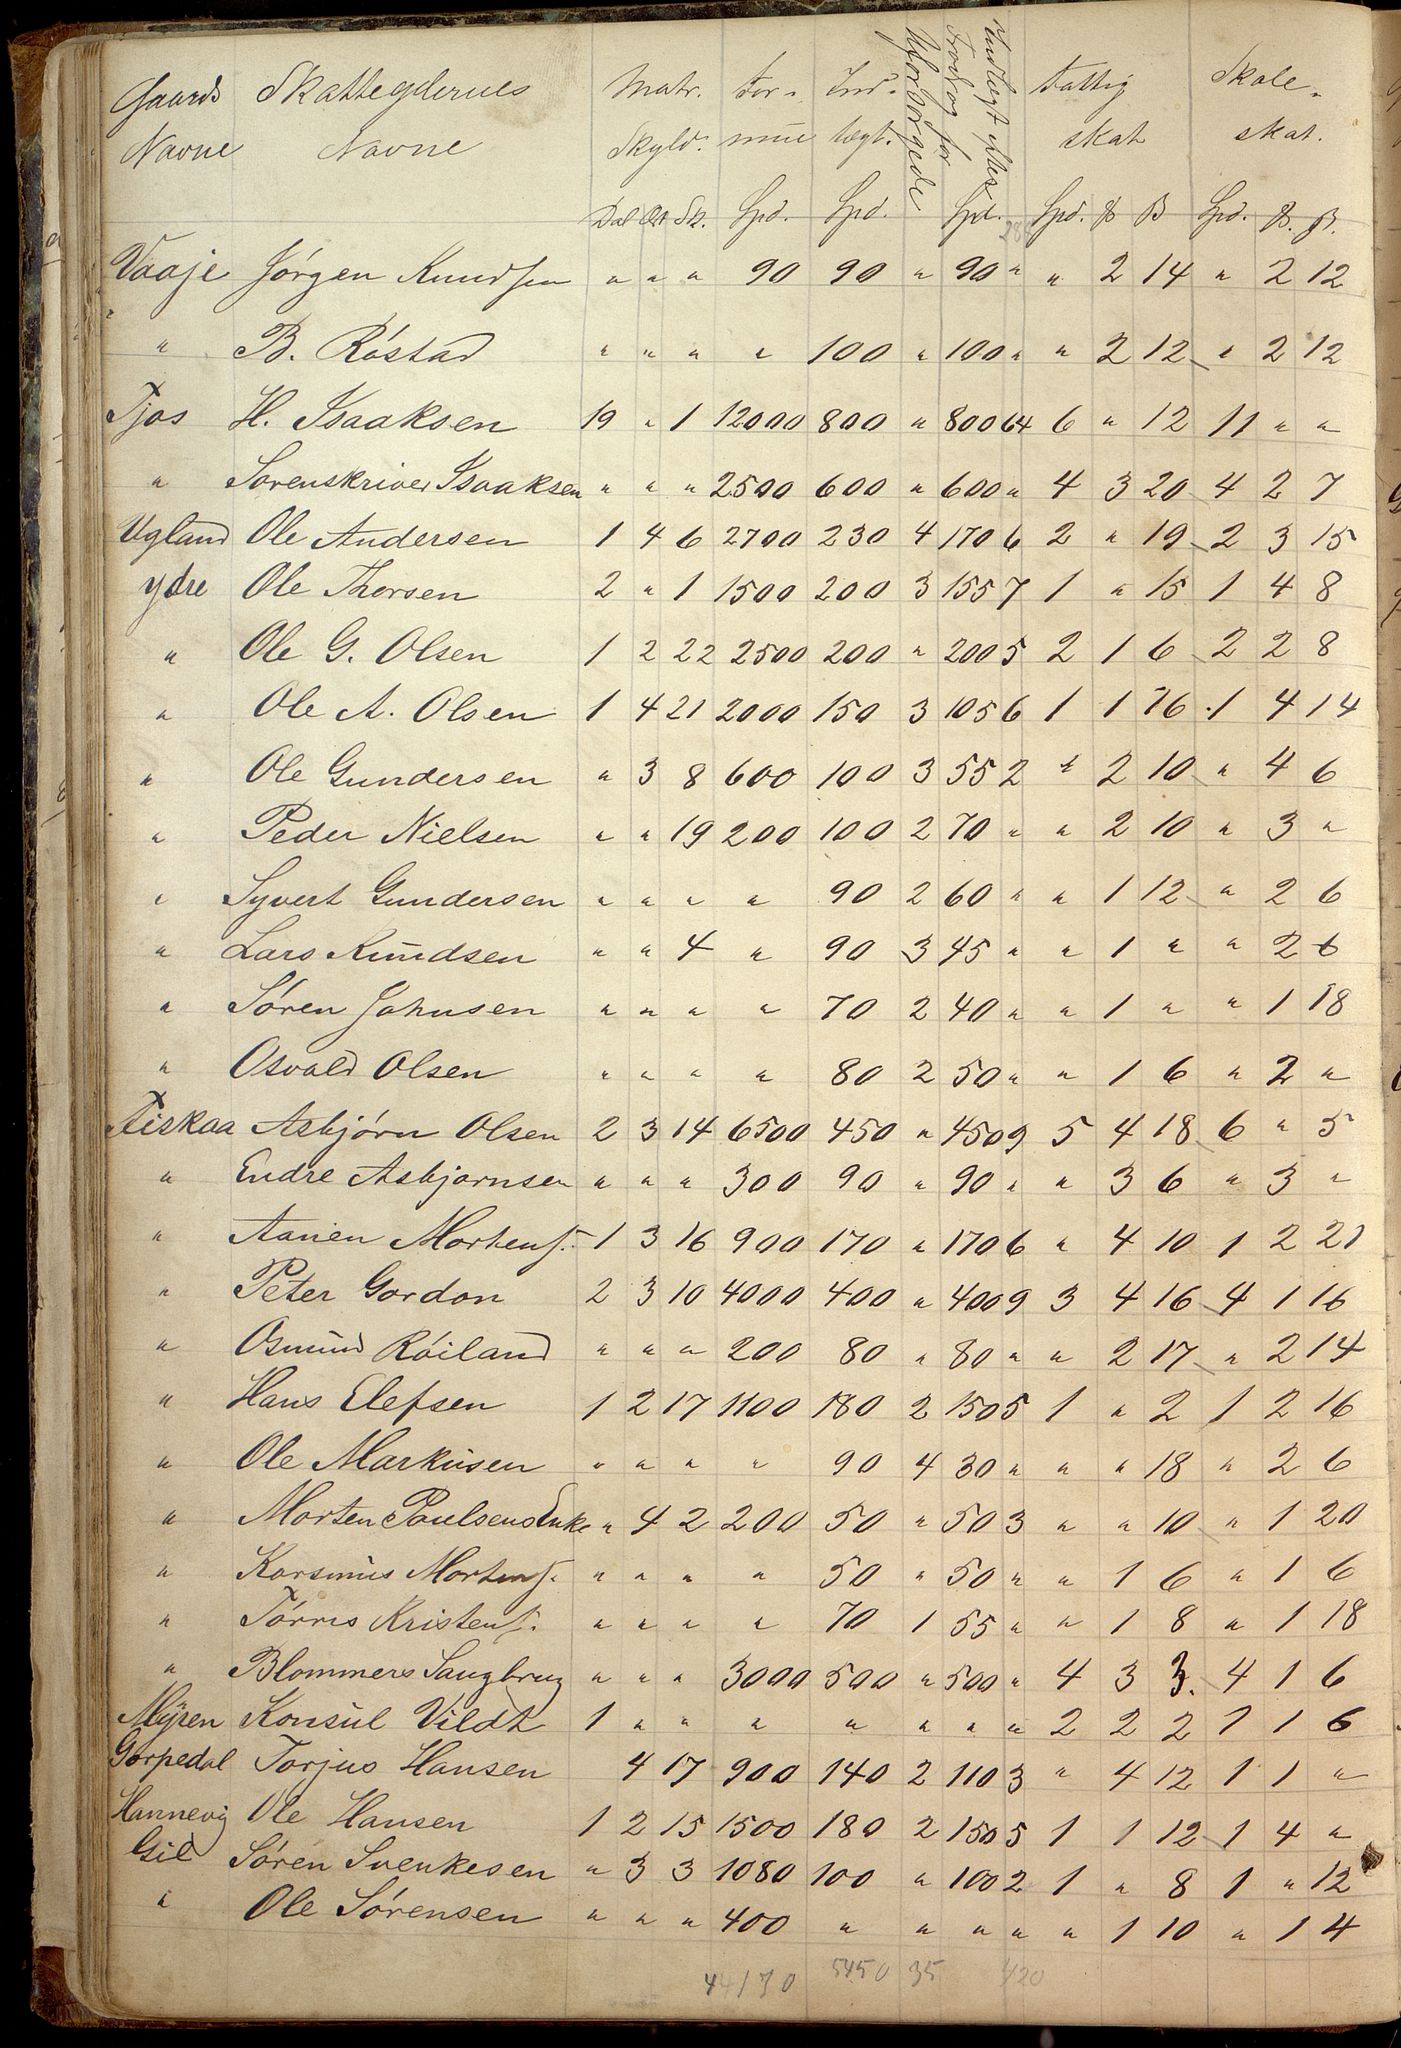 Gaards Skatteydernes Matr. For- Ind- Uforsørgede Indtægt efter Fradrag for Fattig Skole-
Navne Navne Skyld. mue tægt. skat skat.
Dal Ort Sk. Spd. Spd. Spd. Spd. ß Spd. ß.
Vaaje Jørgen Knudsen " " " 90 90 " 90 " " 2 14 " 2 12
" B. Røstad " " " " 100 " 100 " " 2 12 " 2 12
Tjos H. Isaaksen 19 " 1 12000 800 " 800 64 6 " 12 11 " "
" Sorenskriver Isaaksen " " " 2500 600 " 600 " 4 3 20 4 2 7
Ugland Ole Andersen 1 4 6 2700 230 4 170 6 2 " 19 2 3 15
ydre Ole Thorsen 2 " 1 1500 200 3 155 7 1 " 15 1 4 8
" Ole G. Olsen 1 2 22 2500 200 " 200 5 2 1 6 2 2 8
" Ole A. Olsen 1 4 21 2000 150 3 105 6 1 1 16 1 4 14
" Ole Gundersen " 3 8 600 100 3 55 2 " 2 10 " 4 6
" Peder Nielsen " " 19 200 100 2 70 " " 2 10 " 3 "
" Syvert Gundersen " " " " 90 2 60 " " 1 12 " 2 6
" Lars Knudsen " " 4 " 90 3 45 " " 1 " " 2 6
" Søren Johnsen " " " " 70 2 40 " " 1 " " 1 18
" Osvald Olsen " " " " 80 2 50 " " 1 6 " 2 "
Fiskaa Asbjørn Olsen 2 3 14 6500 450 " 450 9 5 4 18 6 " 5
" Endre Asbjørnsen " " " 300 90 " 90 " " 3 6 " 3 "
" Aanen Mortens. 1 3 16 900 170 " 170 6 " 4 10 1 2 21
" Peter Gordon 2 3 10 4000 400 " 400 9 3 4 16 4 1 16
" Osmund Røiland " " " 200 80 " 80 " " 2 17 " 2 14
" Hans Elefsen 1 2 17 1100 180 2 150 5 1 " 2 1 2 16
" Ole Markusen " " " " 90 4 30 " " " 18 " 2 6
" Morten Poulsens Enke " 4 2 200 50 " 50 3 " " 10 " 1 20
" Korsmus Mortens. " " " " 50 " 50 " " 1 6 " 1 6
" Tørres Kristens. " " " " 70 1 55 " " 1 8 " 1 18
" Blommers Saugbrug " " " 3000 500 " 500 " 4 3 3 4 1 6
Myren Konsul Vildt 1 " " " " " " " 2 2 2 1 1 6
Gorpedal Torjus Hansen 4 17 900 140 2 110 3 " 4 12 1 1 "
Hannevig Ole Hansen 1 2 15 1500 180 2 150 5 1 1 12 1 4 "
Gil Søren Svenkesen " 3 3 1080 100 " 100 2 1 " 8 1 " 12
" Ole Sørensen " " " 400 " " " " " 1 10 " 1 4
44170 5450 35 420